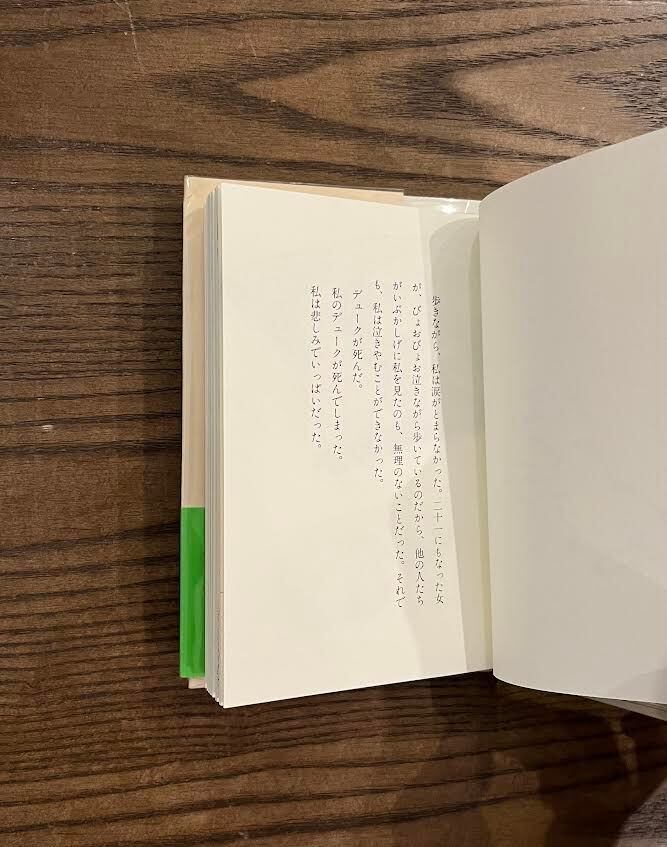 歩きながら、私は涙がとまらなかった。二十一にもなった女
が、びょおびょお泣きながら歩いているのだから、他の人たち
がいぶかしげに私を見たのも、無理のないことだった。それで
も、私は泣きやむことができなかった。
デュークが死んだ。
私のデュークが死んでしまった。
私は悲しみでいっぱいだった。